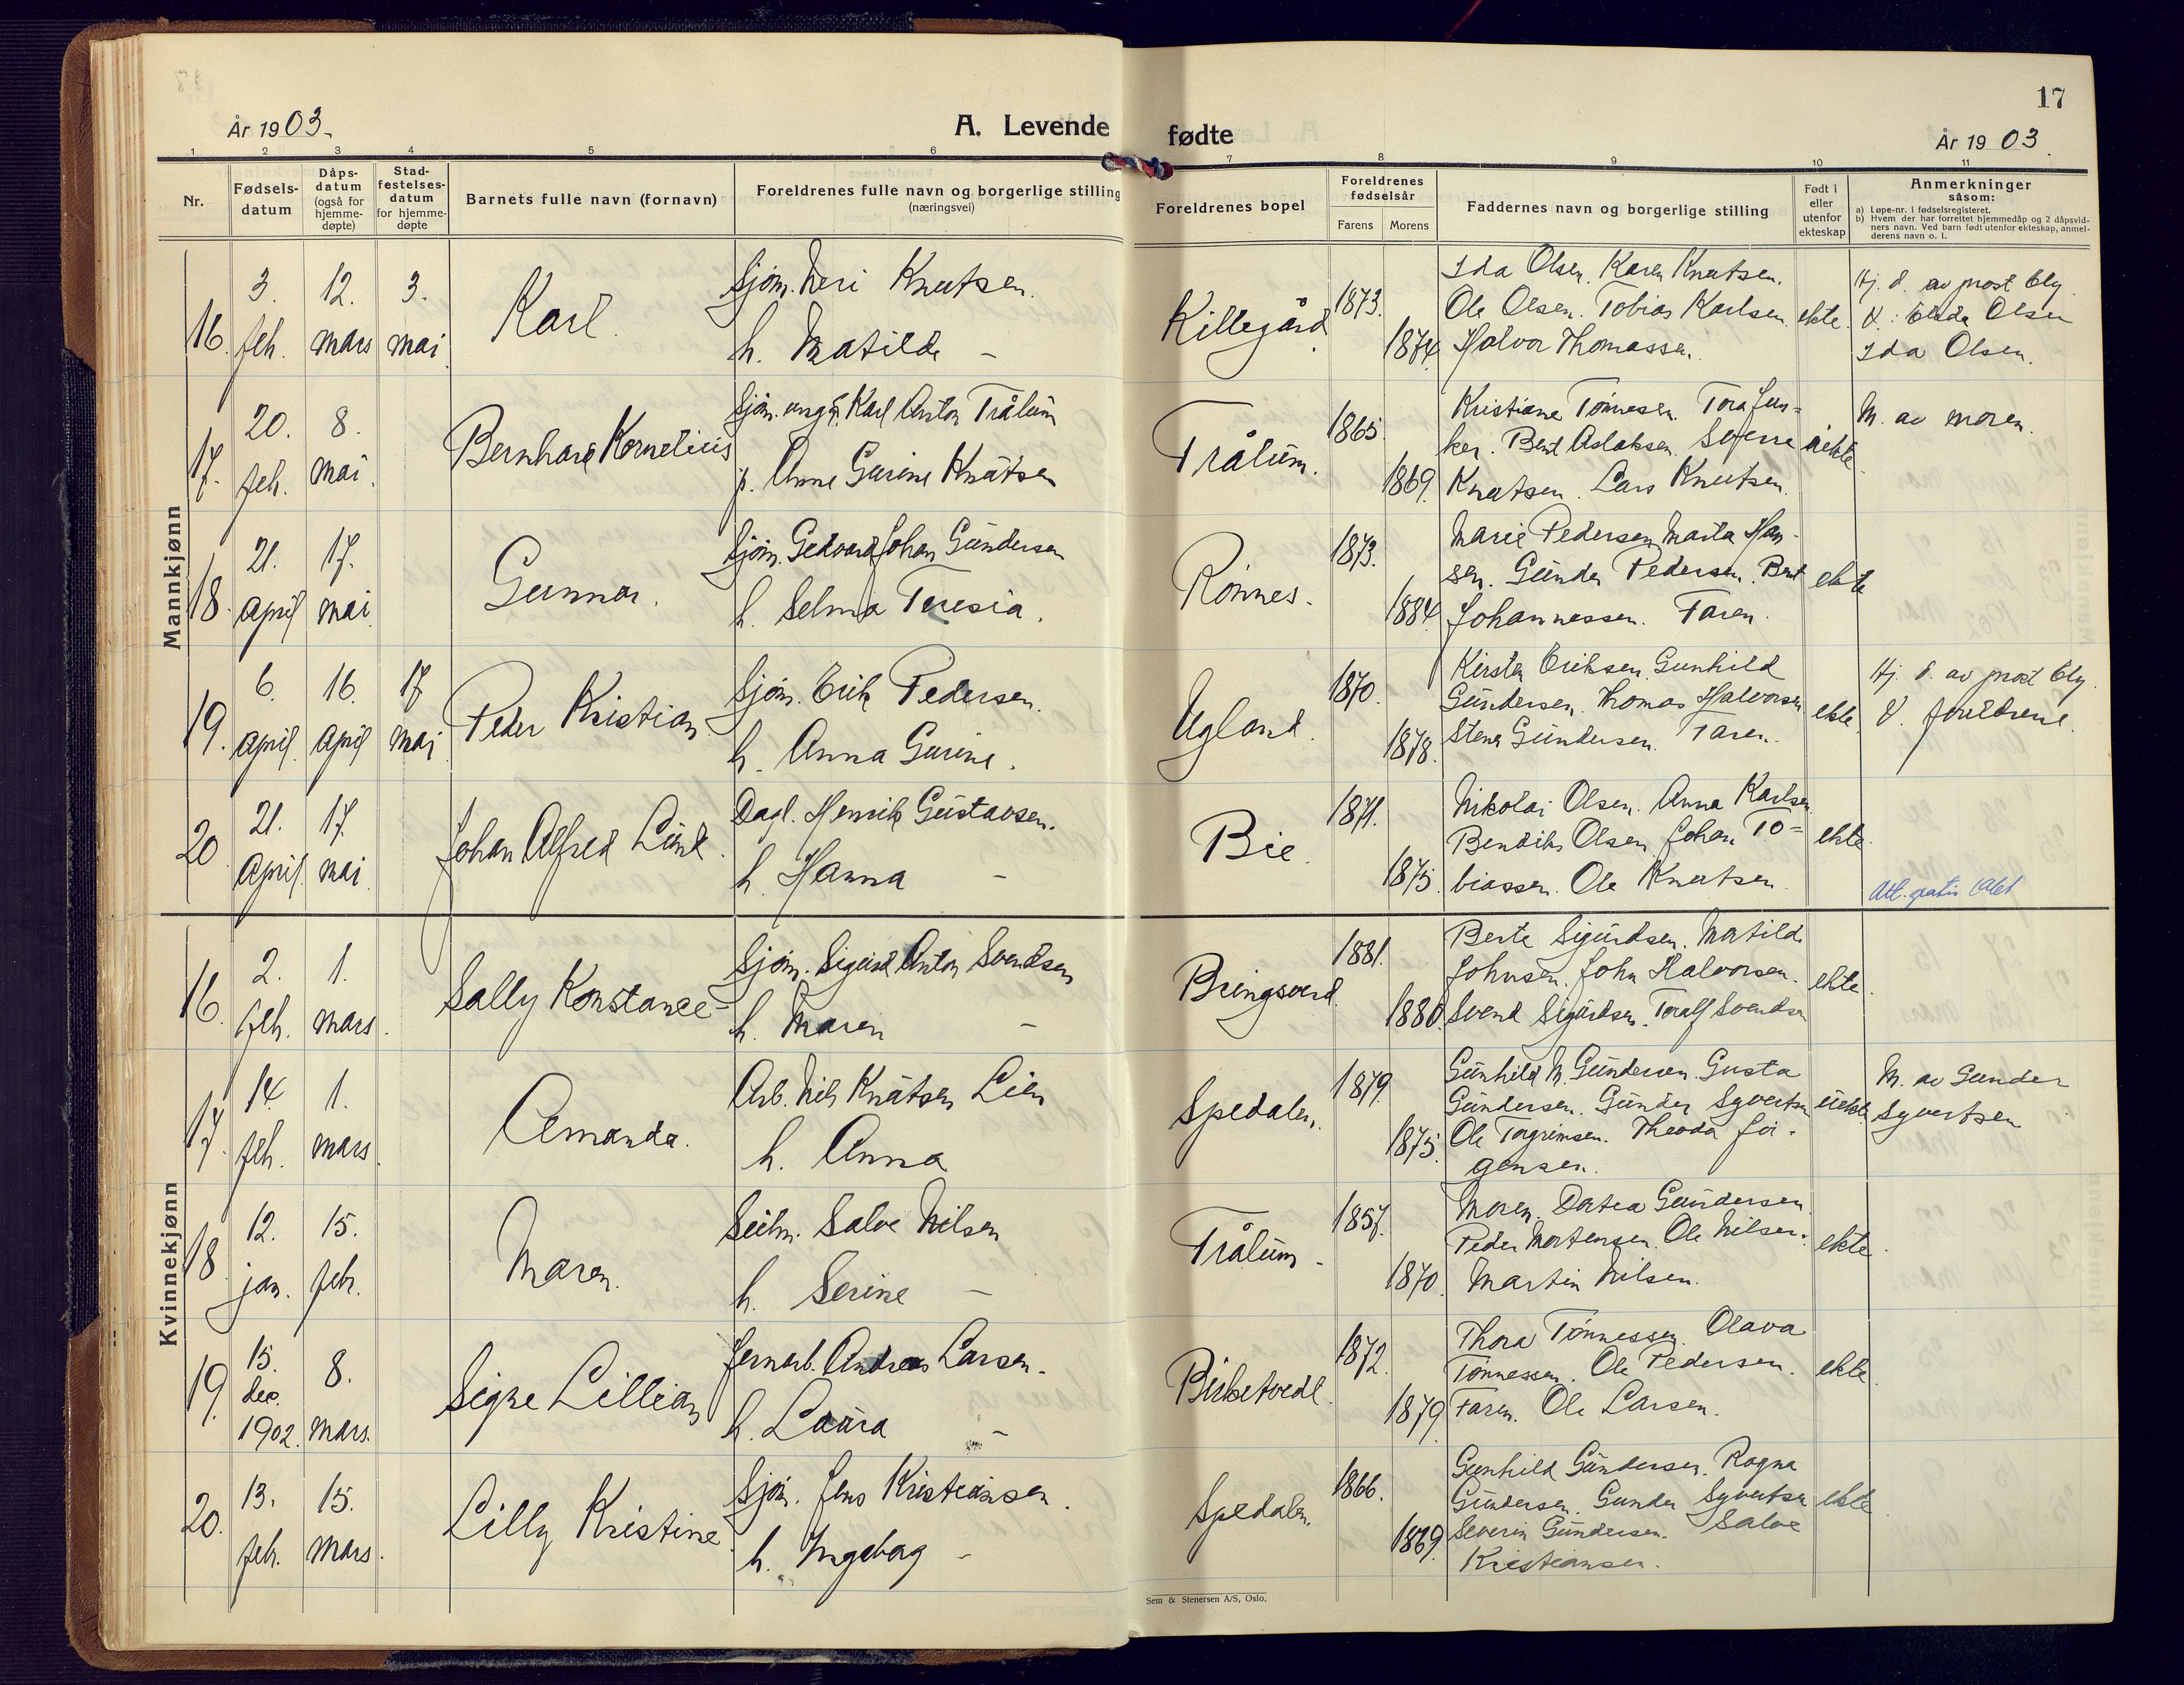 17
År 1903.
A. Levende fødte
År 1903.
1 2 3 4 5 6 7 8 9 10 11
Nr.
Fødsels-
datum
Dåps-
datum
(også for
hjemme-
døpte)
Stad-
festelses-
datum
for hjemme-
døpte
Barnets fulle navn (fornavn)
Foreldrenes fulle navn og borgerlige stilling
(næringsvei)
Foreldrenes bopel
Foreldrenes
fødselsår
Farens Morens
Faddernes navn og borgerlige stilling
Født i
eller
utenfor
ekteskap
Anmerkninger
såsom:
a) Løpe-nr. i fødselsregisteret.
b) Hvem der har forrettet hjemmedåp og 2 dåpsvid-
ners navn. Ved barn født utenfor ekteskap, anmel-
derens navn o. l.
Mannkjønn
16.
3.
feb.
12.
mars
3.
mai
Karl.
Sjøm. Neri Knutsen.
h. Matilde -
Killegård
1873.
1874.
Ida Olsen. Karen Knutsen.
Ole Olsen. Tobias Karlsen.
Halvor Thomassen.
ekte.
Hj. d. av prost
Olsen
Ida Olsen.
17.
20.
feb.
8.
mai.
Bernhard Kornelius
Sjøm. ungk. Karl Anton Trålum
p. Anne Gurine Knutsen
Trålum.
1865.
1869.
Kristiane Tønnesen. Tora Jun=
ker. Bent Aslaksen. Sverre
Knutsen. Lars Knutsen.
uekte
M. av moren.
18.
21.
april
17.
mai.
Gunnar.
Sjøm. Gedvard Johan Gundersen
h. Selma Teresia.
Rønnes.
1873.
1884.
Marie Pedersen Marta Han-
sen. Gunder Pedersen. Bent
Johannessen. Faren.
ekte
19.
6.
april.
16.
April
17
mai
Peder Kristian
Sjøm. Erik Pedersen.
h. Anna Gurine.
Ugland.
1870.
1878.
Kirsten Eriksen. Gunhild
Gundersen. Thomas Halvorsen
Stena Gundersen. Faren.
ekte.
Hj. d. av prost
V. foreldrene.
20.
21.
April.
17.
mai
Johan Alfred Lund.
Dagl. Henrik Gustavsen.
h. Hanna -
Bie.
1871.
1875.
Nikolai Olsen. Anna Karlsen
Bendiks Olsen. Johan To=
biassen. Ole Knutsen.
ekte.
Att. gratis
Kvinnekjønn
16.
2.
feb.
1.
mars.
Sally Konstance
Sjøm. Sigurd Anton Svendsen
h. Maren -
Bringsverd.
1881.
1880.
Berte Sigurdsen. Matilde
Johnsen. John Halvorsen.
Svend Sigurdsen. Toralf Svendsen
ekte.
17.
14.
feb.
1.
mars.
Amanda.
Arb. Nils Knutsen Lien
h. Anna
Spedalen.
1879
1875.
Gunhild M. Gundersen. Gusta
Gundersen. Gunder Syvertsen
Ole Torgrimsen. Theoda Jør-
gensen.
uekte.
M. av Gunder
Syvertsen
18.
12.
jan.
15.
feb.
Maren.
Salve Nilsen
h. Serine -
Trålum -
1857.
1870.
Moren. Dortea Gundersen.
Peder Mortensen. Ole Nilsen.
Martin Nilsen.
ekte.
19.
15.
des.
1902.
8.
mars.
Signe Lillian
Jernarb. Andreas Larsen.
h. Laura -
Birketvedt.
1872.
1879
Thora Tønnessen. Olava
Tønnessen. Ole Pedersen.
Faren. Ole Larsen.
ekte.
20.
13.
feb.
15.
mars.
Lilly Kristine
Sjøm. Jens Kristiansen.
h. Ingeborg -
Spedalen.
1866.
1869.
Gunhild Gundersen. Ragna
Gundersen. Gunder Syvertsen
Severin Gundersen. Salve
Kristiansen.
ekte
Sem & Stenersen A/S, Oslo.